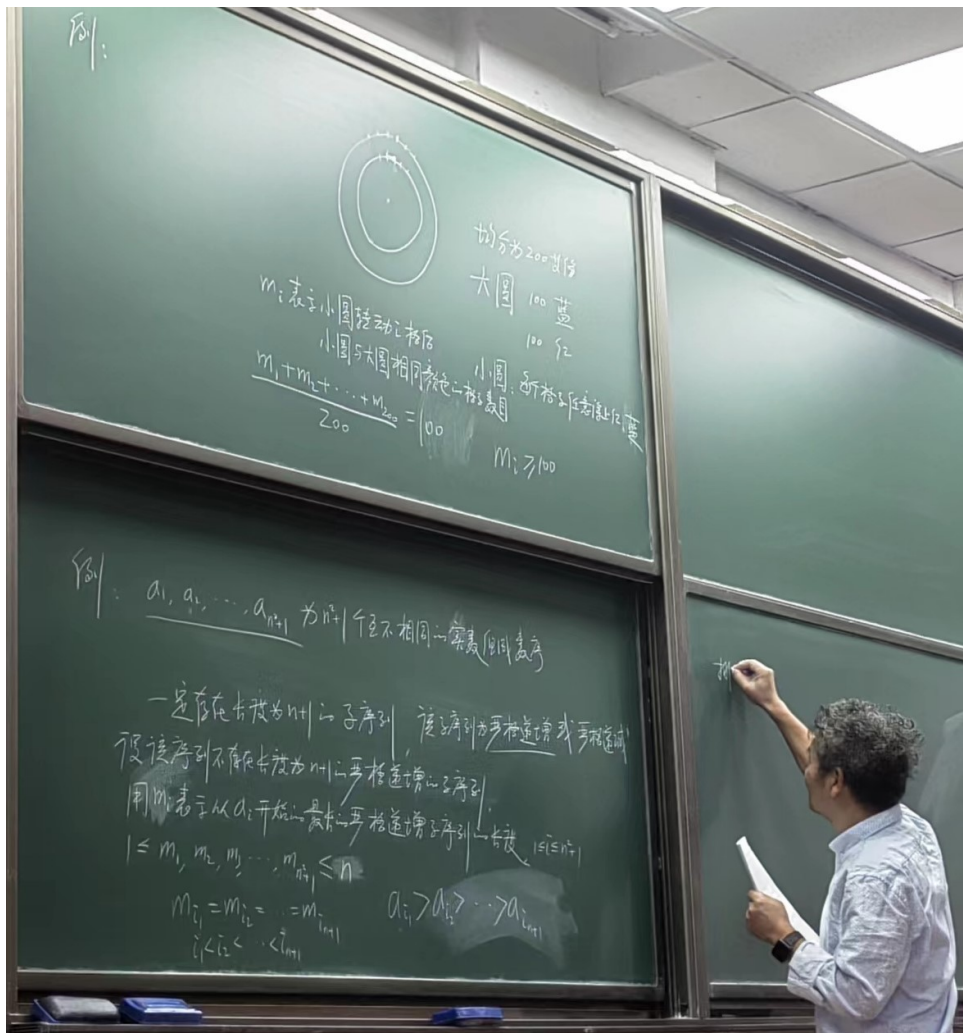 例:
均分为200等份
大圆 100 蓝
100 红
小圆: 每个格子任意涂上红、蓝
m_i 表示小圆转动i格后
小圆与大圆相同颜色的格子数目
(m_1+m_2+⋯+m_200)/200 = 100
m_i ≥ 100
例: a_1, a_2, ⋯, a_{n²+1} 为n²+1个互不相同的实数组成数序
一定存在长度为n+1的子序列, 该子序列为严格递增或严格递减
设该序列不存在长度为n+1的严格递增的子序列.
用m_i表示从a_i开始的最长的严格递增子序列的长度, 1≤i≤n²+1
1≤ m_1, m_2, m_3, ⋯, m_{n²+1} ≤ n
m_{i_1}=m_{i_2}=⋯=m_{i_{n+1}}
a_{i_1}>a_{i_2}>⋯>a_{i_{n+1}}
i_1<i_2<⋯<i_{n+1}